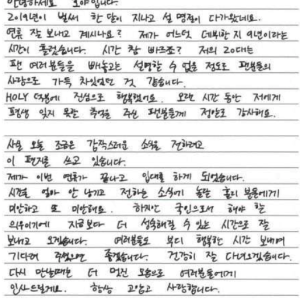 안녕하세요. 호야입니다.
2019년이 벌써 한 달이 지나고 설 명절이 다가왔네요.
연휴 잘 보내고 계시나요? 제가 어느덧 데뷔한 지 9년이라는
시간이 흘렀습니다. 시간 참 빠르죠? 저의 20대는
팬 여러분들을 빼놓고는 설명할 수 없을 정도로 팬분들의
사랑으로 가득 차있었던 것 같습니다.
HOLY 덕분에 진심으로 행복했어요. 오랜 시간 동안 저에게
평생 잊지 못할 추억을 주신 팬분들께 정말로 감사해요.
사실 오늘 조금은 갑작스러운 소식을 전하려고
이 편지를 쓰고 있습니다.
제가 이번 연휴가 끝나고 입대를 하게 되었습니다.
시간을 얼마 안 남기고 전하는 소식이 놀란 홀리 분들에게
미안하고 또 미안해요. 하지만 국민으로서 해야 할
의무이기에 지금보다 더 성숙해질 수 있는 시간으로 잘
보내고 오겠습니다. 여러분들도 부디 행복한 시간 보내며
기다려 주셨으면 좋겠습니다. 건강히 잘 다녀오겠습니다.
다시 만날때는 더 멋진 모습으로 여러분들에게
인사드릴게요. 항상 고맙고 사랑합니다.